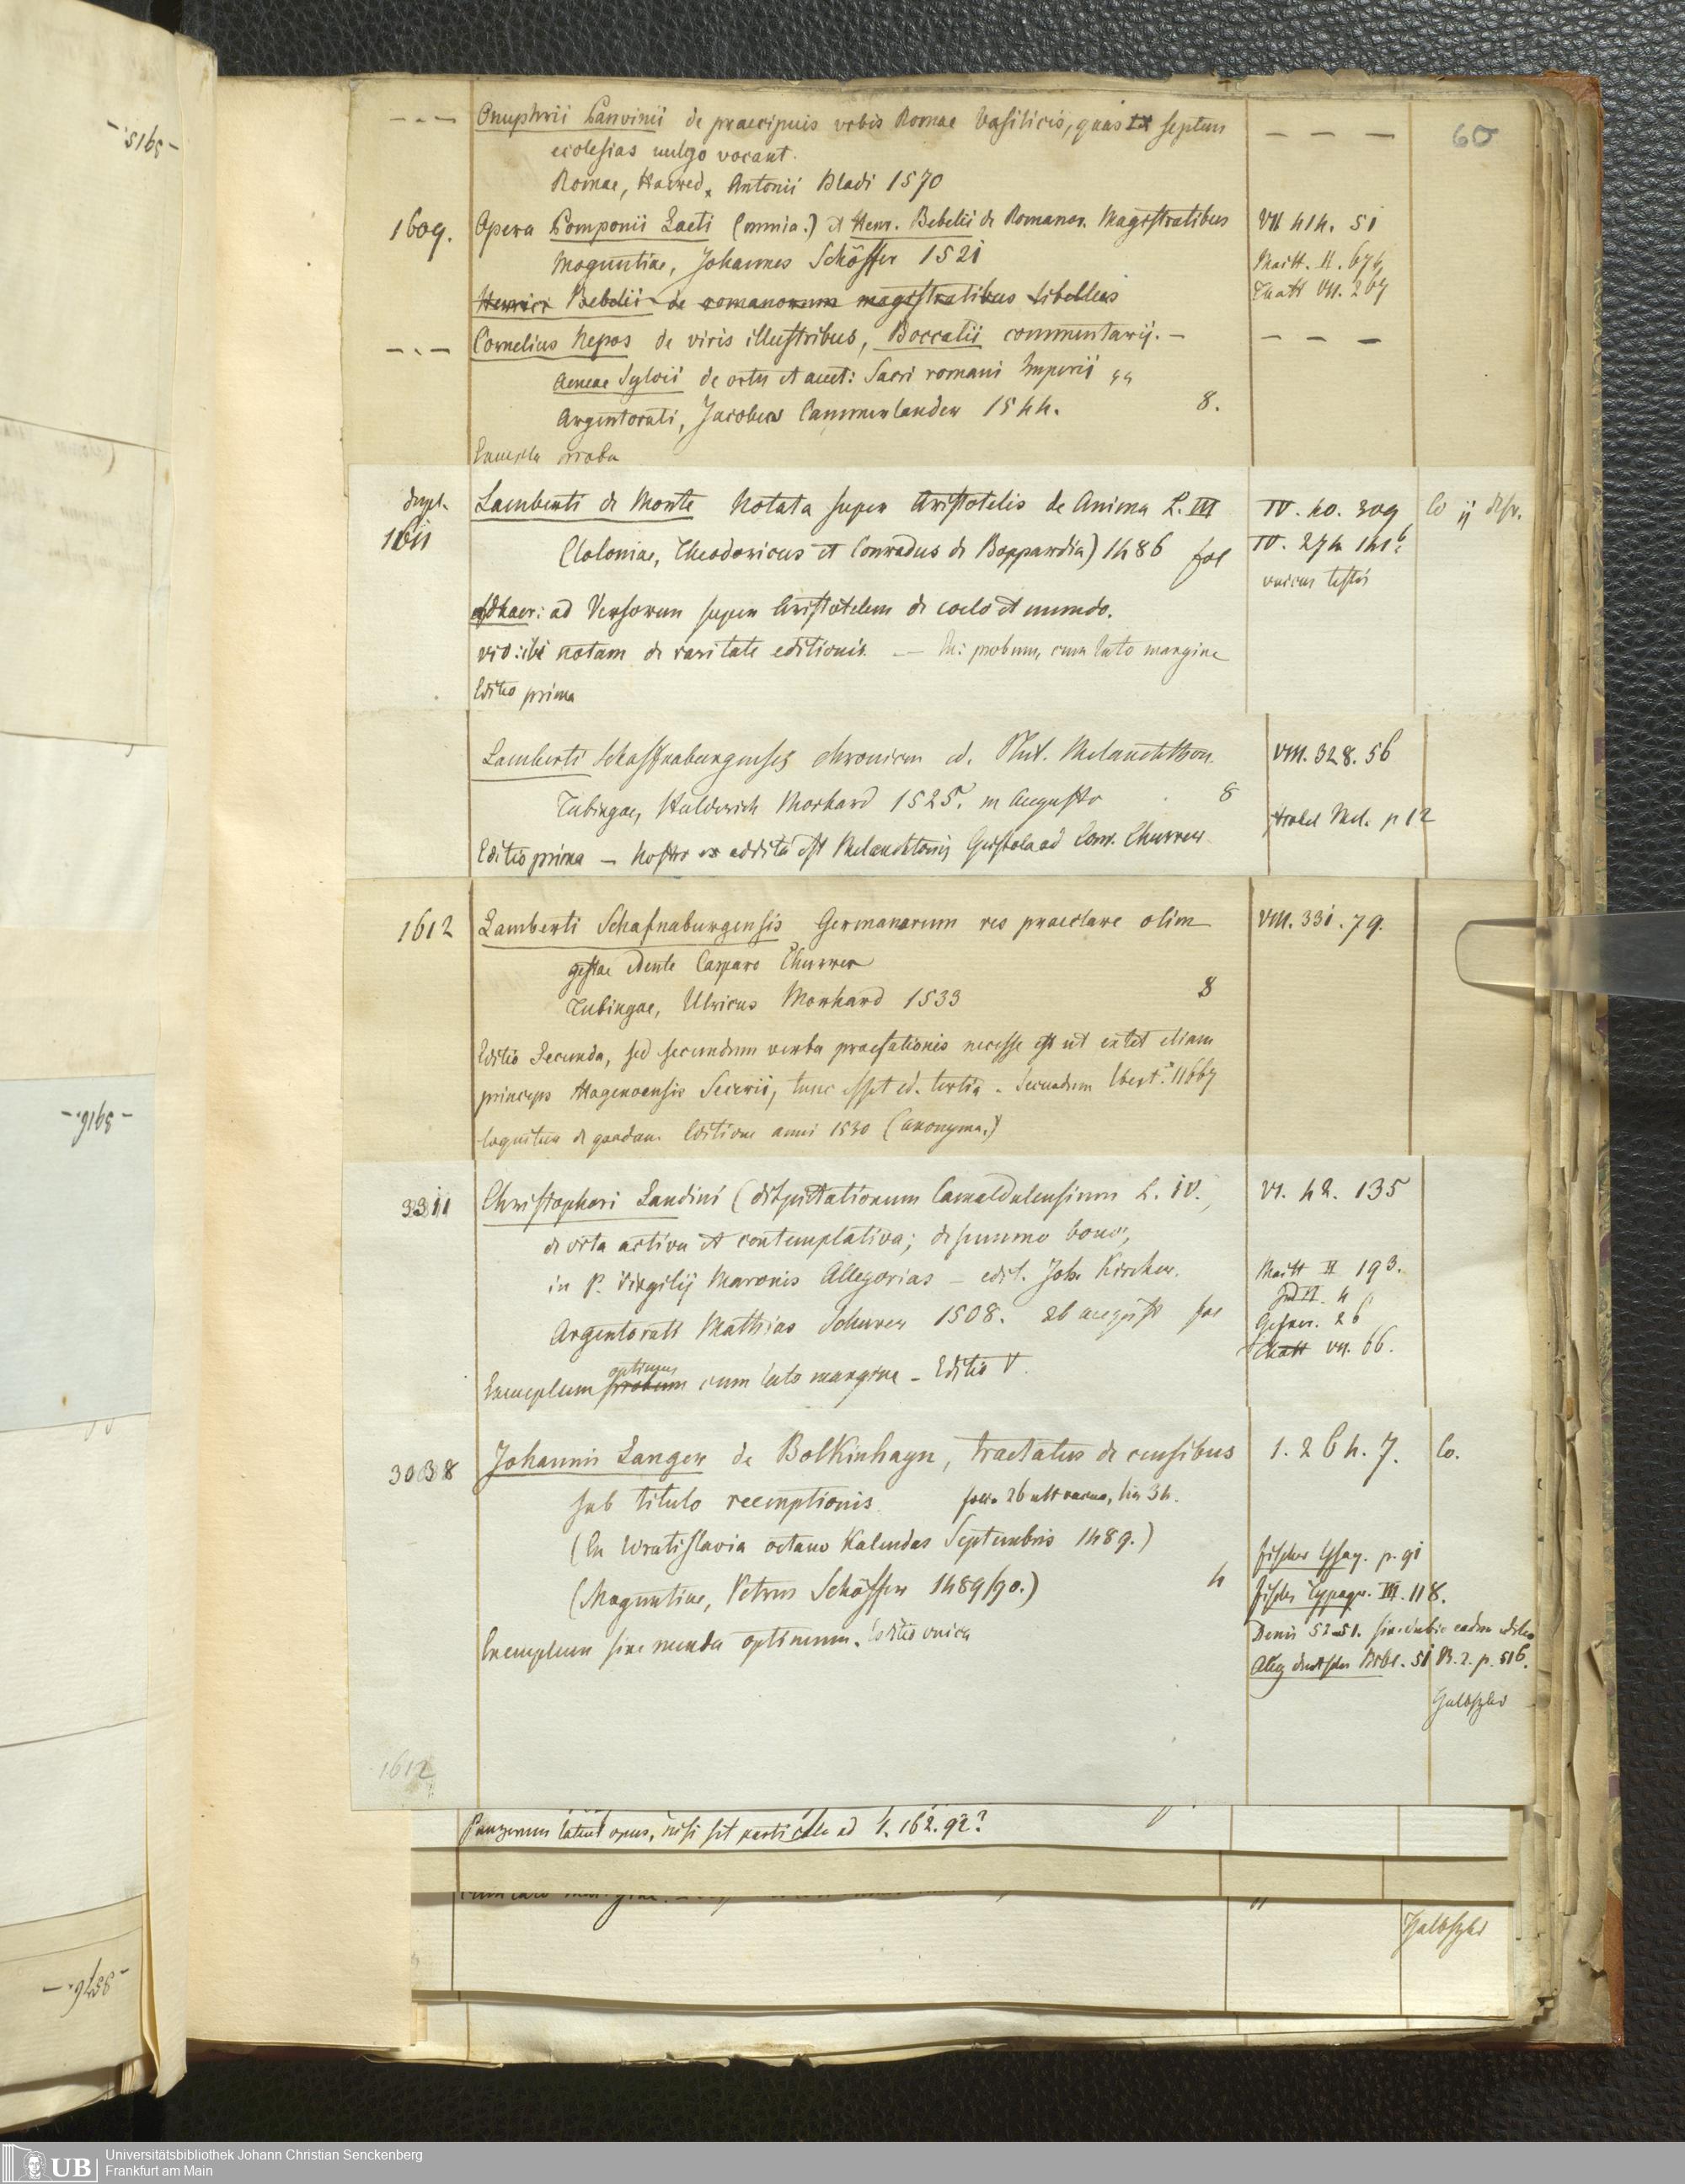 - - - Onuphrii Panvinii de praecipuis urbis Romae basilicis, quas septem - - - 60
ecclesias vulgo vocant.
Romae, Haered. Antonii Bladi 1570
1609. Opera Pomponii Laeti (omnia.) et Henr. Bebelii de Romanor. Magistratibus VII 414. 51
Moguntiae, Johannes Schöffer 1521 Maitt. II. 674
Henrici Bebelii de romanorum magistratibus libellus VII. 269
- - - Cornelius Nepos de viris illustribus, Boccatii commentarij. - - - -
Aeneae Sylvii de ortu et auct: Sacri romani Imperii
Argentorati, Jacobus Cammerlander 1544. 8.
Exempla proba
dupl. Lamberti de Monte Notata super Aristotelis de Anima L. III IV. 40. 309 Co ij
1611 (Coloniae, Theodoricus et Conradus de Boppardia) 1486 fol IV. 274 141b
unicus testis
adhaer: ad Versorem super Aristotelem de coelo et mundo.
vid: ibi notam de raritate editionis. — Ex: probum, cum lato margine
Editio prima
Lamberti Schaffnaburgensis chronicon ed. Phil. Melanchthon. VIII. 328. 56
Tubingae, Hulderich Morhard 1525. m Augusto 8
Strobel Mel. p 12
Editio prima — nostro addita est Melanchtonis Epistola ad Casp. Churrer
1612 Lamberti Schafnaburgensis Germanorum res praeclare olim VIII. 331. 79.
gestae edente Casparo Churrer
Tubingae, Ulricus Morhard 1533 8
Editio Secunda, sed secundum verba praefationis necesse est ut extet etiam
princeps Hagenoensis Secerii, tunc esset ed. tertia. Secundum Ebert. 11667
loquitur de quadam Editione anni 1530 (anonyma.)
3311 Christophori Landini (disputationum Camaldulensium L. IV.) VI. 42. 135
de vita activa et contemplativa; de summo bono,
in P. Virgilij Maronis Allegorias — edit. Joh. Kircher. Maitt II 193.
Ind II. 4
Argentorati Mathias Schurer 1508. 26 august fol Gesner. 26
VII. 66.
optimum
Exemplum probum cum lato margine — Editio V.
3038 Johannis Langer de Bolkinhayn, tractatus de censibus 1. 264. 7. Co.
sub titulo reemptionis. folia 26 ult vacua, lin 34.
(In Wratislavia octavo Kalendas Septembris 1489.)
Fischer Essay. p. 91
(Maguntiae, Petrus Schöffer 1489/90.) 4 Fischer Typogr. III. 118.
Denis 52 51. sine dubio eadem editio
Exemplum sine menda optimum. Editio unica Allg deutsche Bibl. 51 B. 2. p. 516.
Halbfrzbd
1612
Panzerum latuit opus, nisi sit particula ad 1. 162. 92?
Halbfrzbd
- 5915. -
- 5916. -
- 3576. -
UB Universitätsbibliothek Johann Christian Senckenberg
Frankfurt am Main